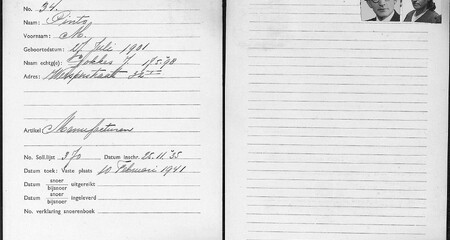 No. 34.
Naam: Pinto
Voornaam: M.
Geboortedatum: Juli 1901
Naam echtg(e): J.
Adres:
Artikel Manufacturen
No. Soll.lijst 370 Datum inschr. 25.11.'35
Datum toek: Vaste plaats 10 Februari 1941
Datum snoer bijsnoer uitgereikt
Datum snoer bijsnoer ingeleverd
No. verklaring snoerenboek